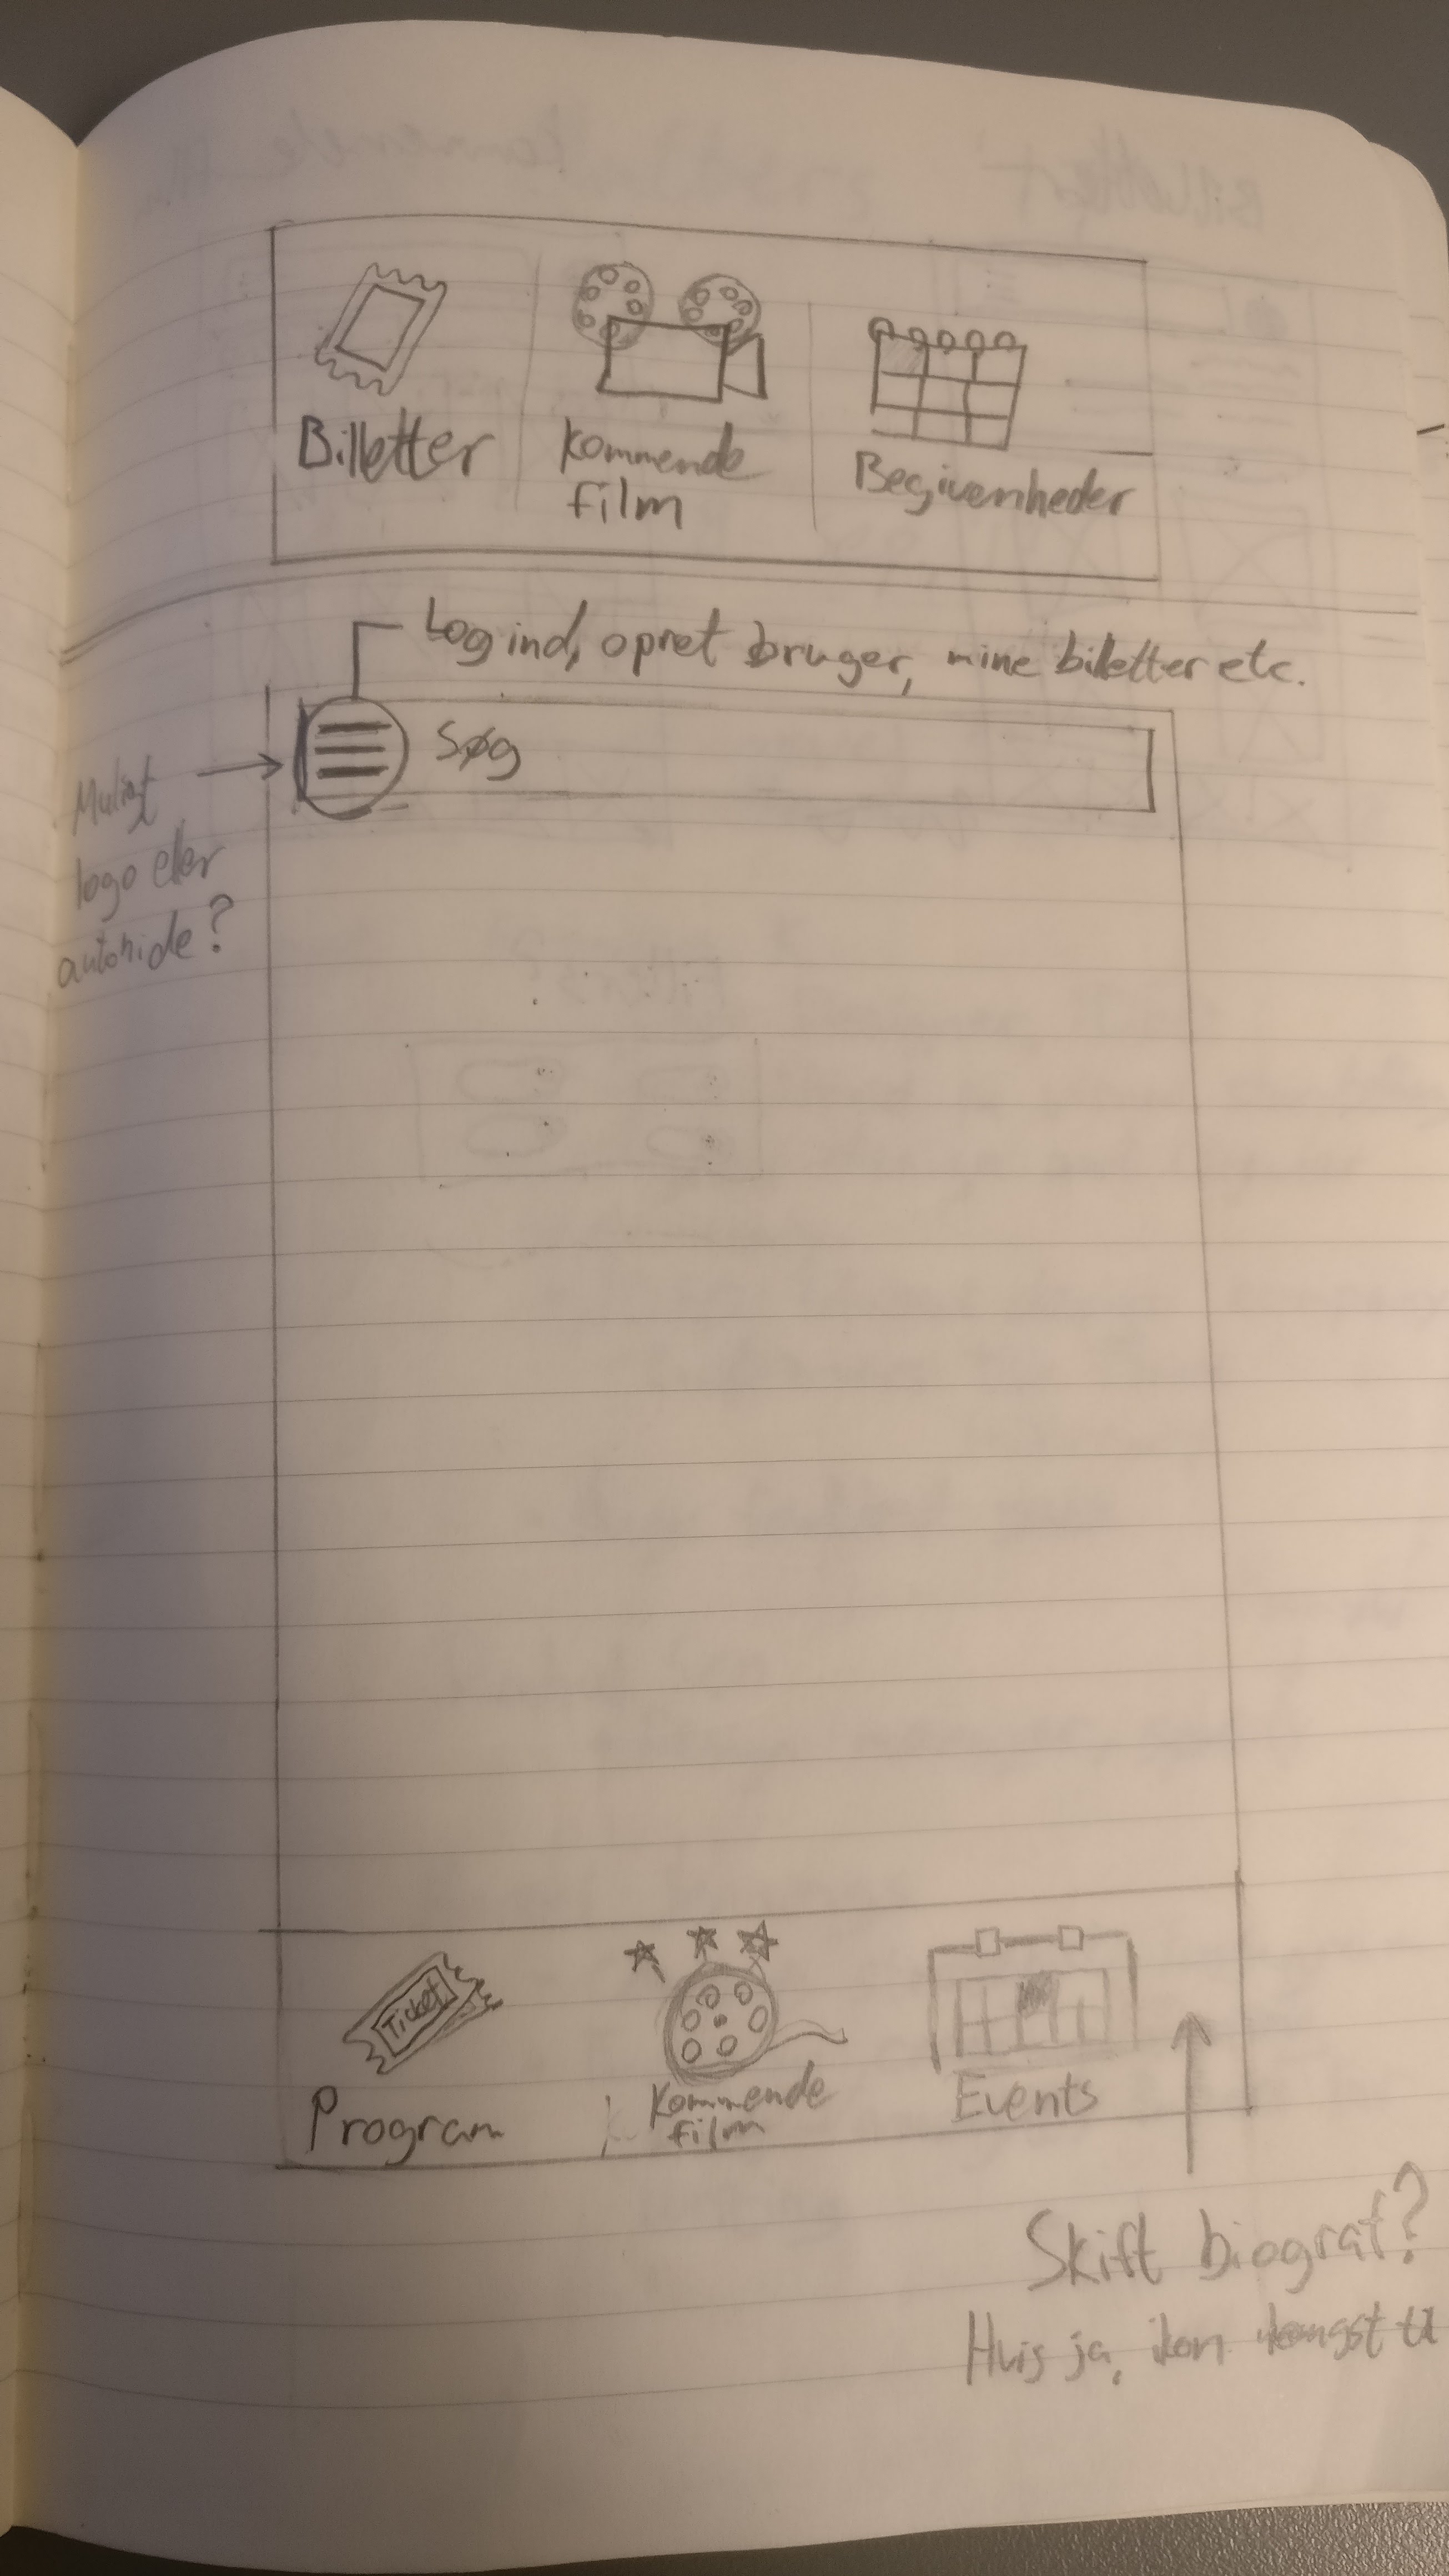 Billetter
Kommende
film
Begivenheder
Log ind, opret bruger, mine billetter etc.
Søg
Muligt
logo eller
autohide?
Ticket
Program
Kommende
film
Events
Skift biograf?
Hvis ja, ikon længst